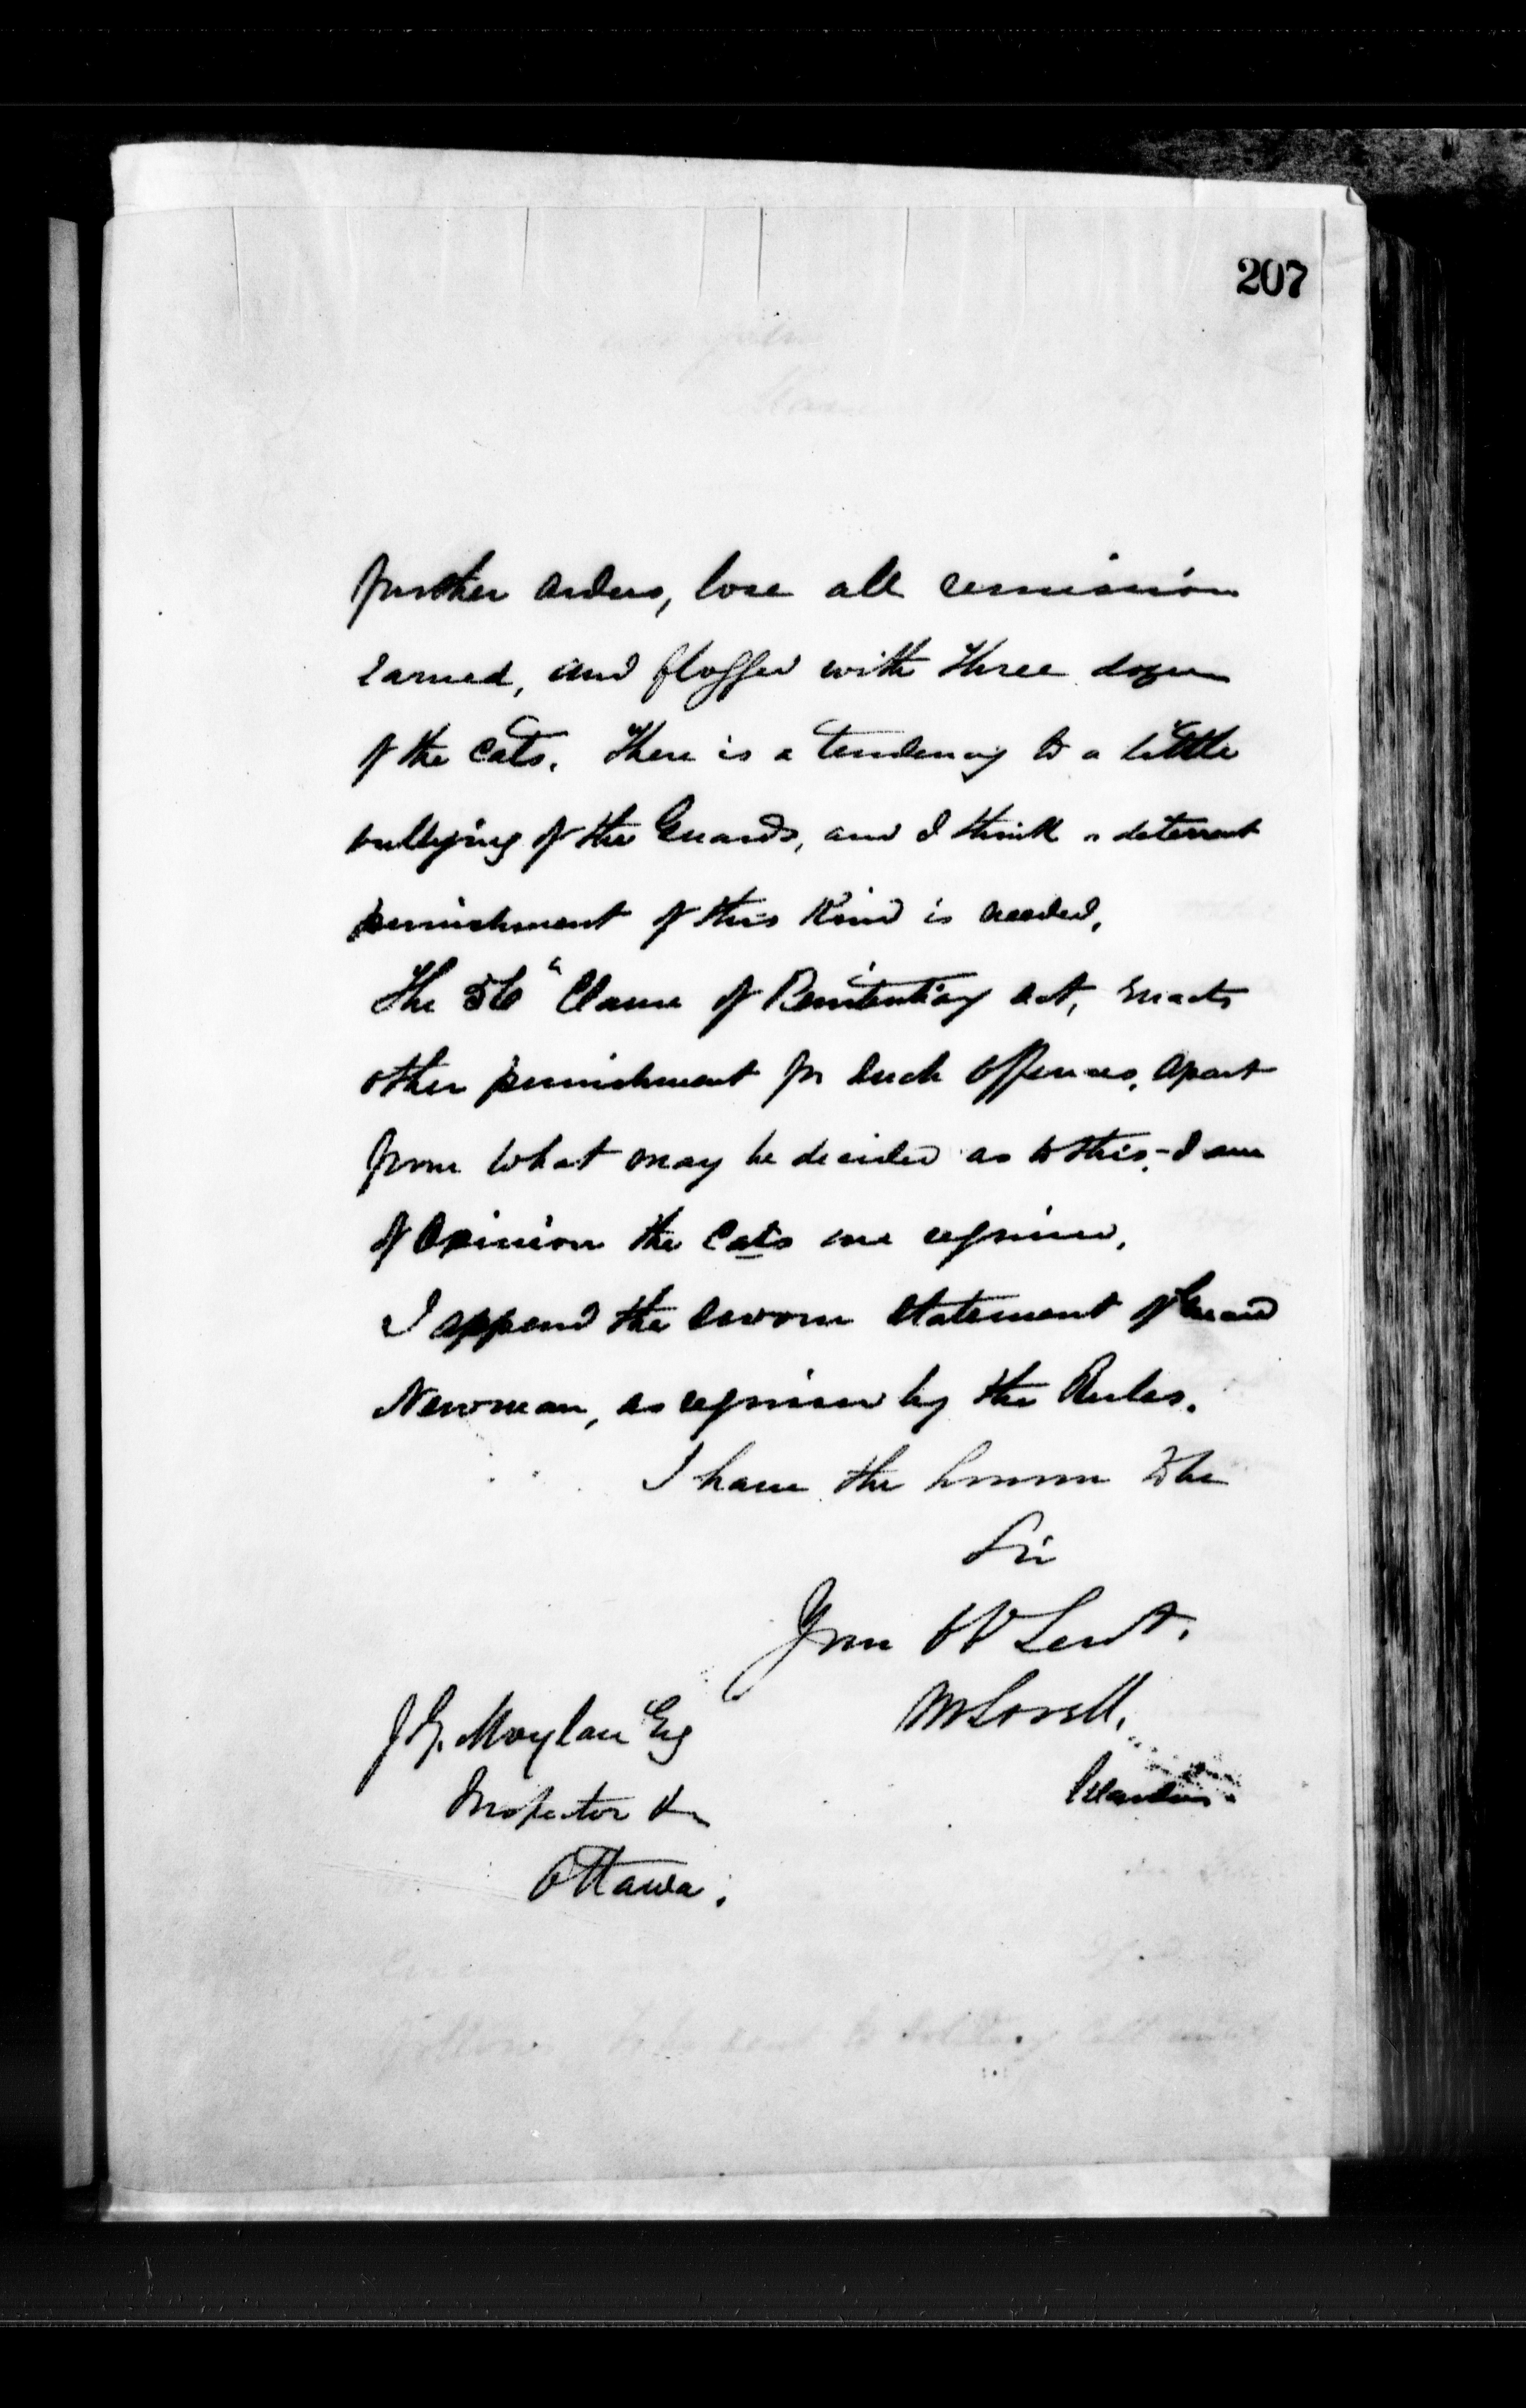 207
further orders, lose all remission
earned, and flogged with three dozen
of the Cats. There is a tendency to a little
bullying of the Guards, and I think a deterrent
punishment of this Kind is needed.
The 56th Clause of Penitentiary Act, enacts
other punishment for such offences, apart
from what may be decided as to this,- I am
of Opinion the Cats are required.
I append the sworn statement of Guard
Newman, as required by the Rules.
I have the honour to be
Sir
Your Ob Servt.
J.G. Moylan Esq
Inspector &c
Warden
Ottawa.